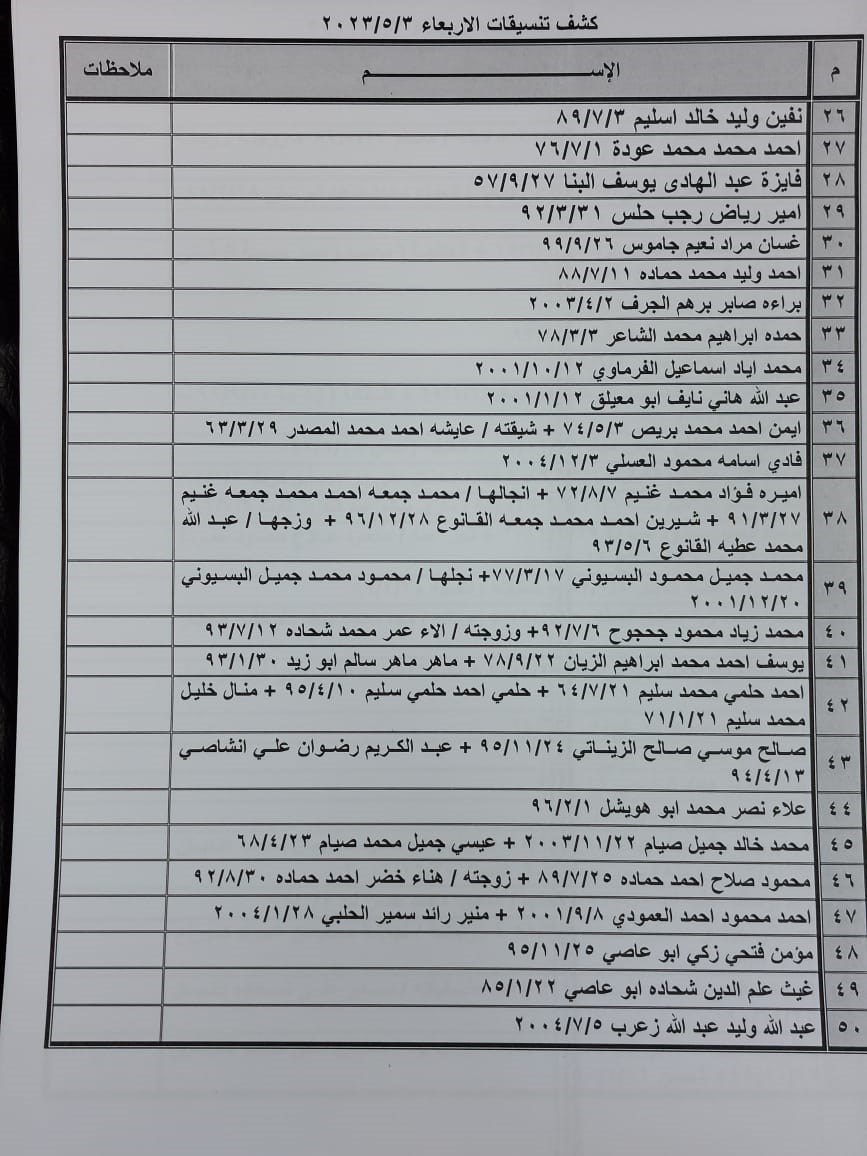 كشف تنسيقات الاربعاء ٢٠٢٣/٥/٣
م الإســـــــــــــــم ملاحظات
٢٦ نفين وليد خالد اسليم ٨٩/٧/٣
٢٧ احمد محمد محمد عودة ٧٦/٧/١
٢٨ فايزة عبد الهادى يوسف البنا ٥٧/٩/٢٧
٢٩ امير رياض رجب حلس ٩٢/٣/٣١
٣٠ غسان مراد نعيم جاموس ٩٩/٩/٢٦
٣١ احمد وليد محمد حماده ٨٨/٧/١١
٣٢ براءه صابر برهم الجرف ٢٠٠٣/٤/٢
٣٣ حمده ابراهيم محمد الشاعر ٧٨/٣/٣
٣٤ محمد اياد اسماعيل الفرماوي ٢٠٠١/١٠/١٢
٣٥ عبد الله هاني نايف ابو معيلق ٢٠٠١/١/١٢
٣٦ ايمن احمد محمد بريص ٧٤/٥/٣ + شيقته / عايشه احمد محمد المصدر ٦٣/٣/٢٩
٣٧ فادي اسامه محمود العسلي ٢٠٠٤/١٢/٣
٣٨ اميره فؤاد محمد غنيم ٧٢/٨/٧ + انجالها / محمد جمعه احمد محمد جمعه غنيم
٩١/٣/٢٧ + شيرين احمد محمد جمعه القانوع ٩٦/١٢/٢٨ + وزجها / عبد الله
محمد عطيه القانوع ٩٣/٥/٦
٣٩ محمد جميل محمود البسيوني ٧٧/٣/١٧+ نجلها / محمود محمد جميل البسيوني
٢٠٠١/١٢/٢٠
٤٠ محمد زياد محمود جحجوح ٩٢/٧/٦+ وزوجته / الاء عمر محمد شحاده ٩٣/٧/١٢
٤١ يوسف احمد محمد ابراهيم الزيان ٧٨/٩/٢٢ + ماهر ماهر سالم ابو زيد ٩٣/١/٣٠
٤٢ احمد حلمي محمد سليم ٦٤/٧/٢١ + حلمي احمد حلمي سليم ٩٥/٤/١٠ + منال خليل
محمد سليم ٧١/١/٢١
٤٣ صالح موسي صالح الزيناتي ٩٥/١١/٢٤ + عبد الكريم رضوان علي انشاصي
٩٤/٤/١٣
٤٤ علاء نصر محمد ابو هويشل ٩٦/٢/١
٤٥ محمد خالد جميل صيام ٢٠٠٣/١١/٢٢ + عيسي جميل محمد صيام ٦٨/٤/٢٣
٤٦ محمود صلاح احمد حماده ٨٩/٧/٢٥ + زوجته / هناء خضر احمد حماده ٩٢/٨/٣٠
٤٧ احمد محمود احمد العمودي ٢٠٠١/٩/٨ + منير رائد سمير الحلبي ٢٠٠٤/١/٢٨
٤٨ مؤمن فتحي زكي ابو عاصي ٩٥/١١/٢٥
٤٩ غيث علم الدين شحاده ابو عاصي ٨٥/١/٢٢
٥٠ عبد الله وليد عبد الله زعرب ٢٠٠٤/٧/٥